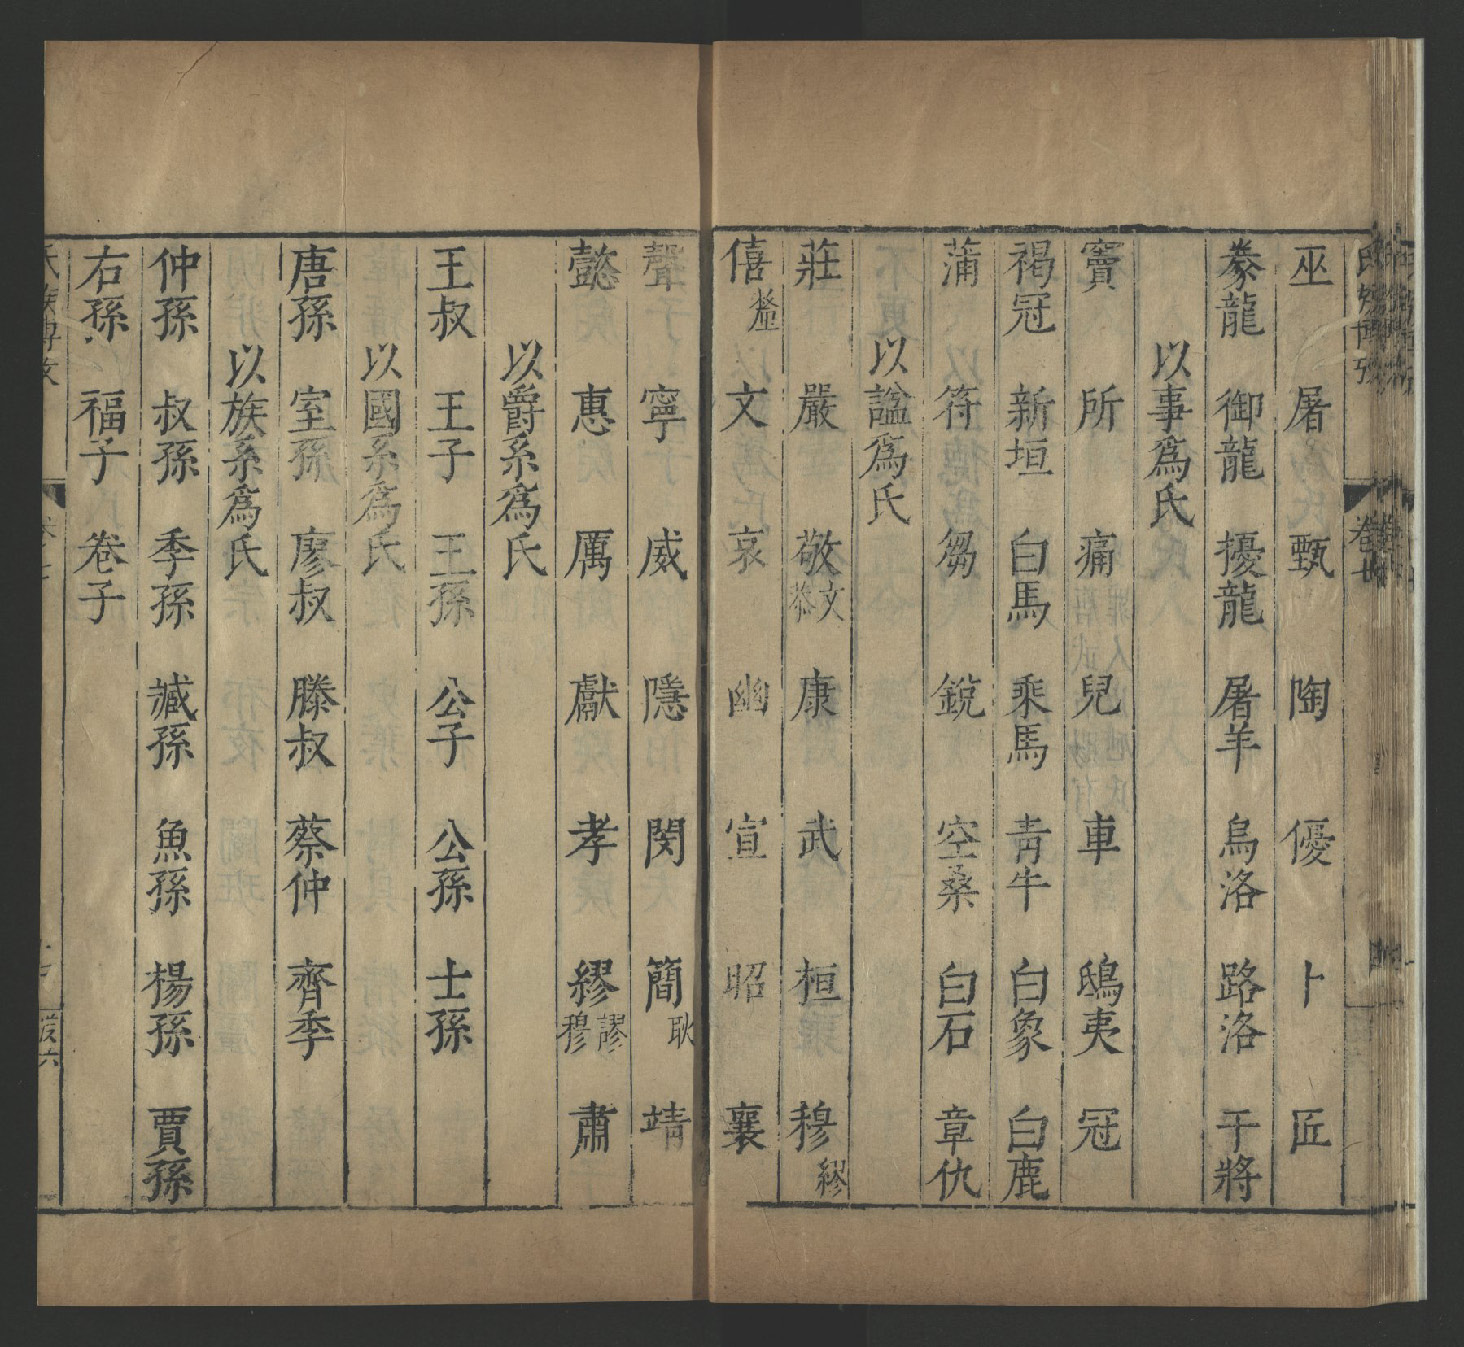 巫 屠 甄 陶 優 卜 匠
豢龍 御龍 擾龍 屠羊 烏洛 路洛 干將
以事爲氏
竇 所 痛 兒 車 鴟夷 冠
褐冠 新垣 白馬 乘馬 青牛 白象 白鹿
蒲 符 芻 銳 空桑 白石 章仇
以諡爲氏
莊 嚴 敬文恭 康 武 桓 穆繆
僖釐 文 哀 幽 宣 昭 襄
聲 寧 威 隱 閔 簡耿 靖
懿 惠 厲 獻 孝 繆謬穆 肅
以爵系爲氏
王叔 王子 王孫 公子 公孫 士孫
以國系爲氏
唐孫 室孫 廖叔 滕叔 蔡仲 齊季
以族系爲氏
仲孫 叔孫 季孫 臧孫 魚孫 楊孫 賈孫
右孫 福子 卷子